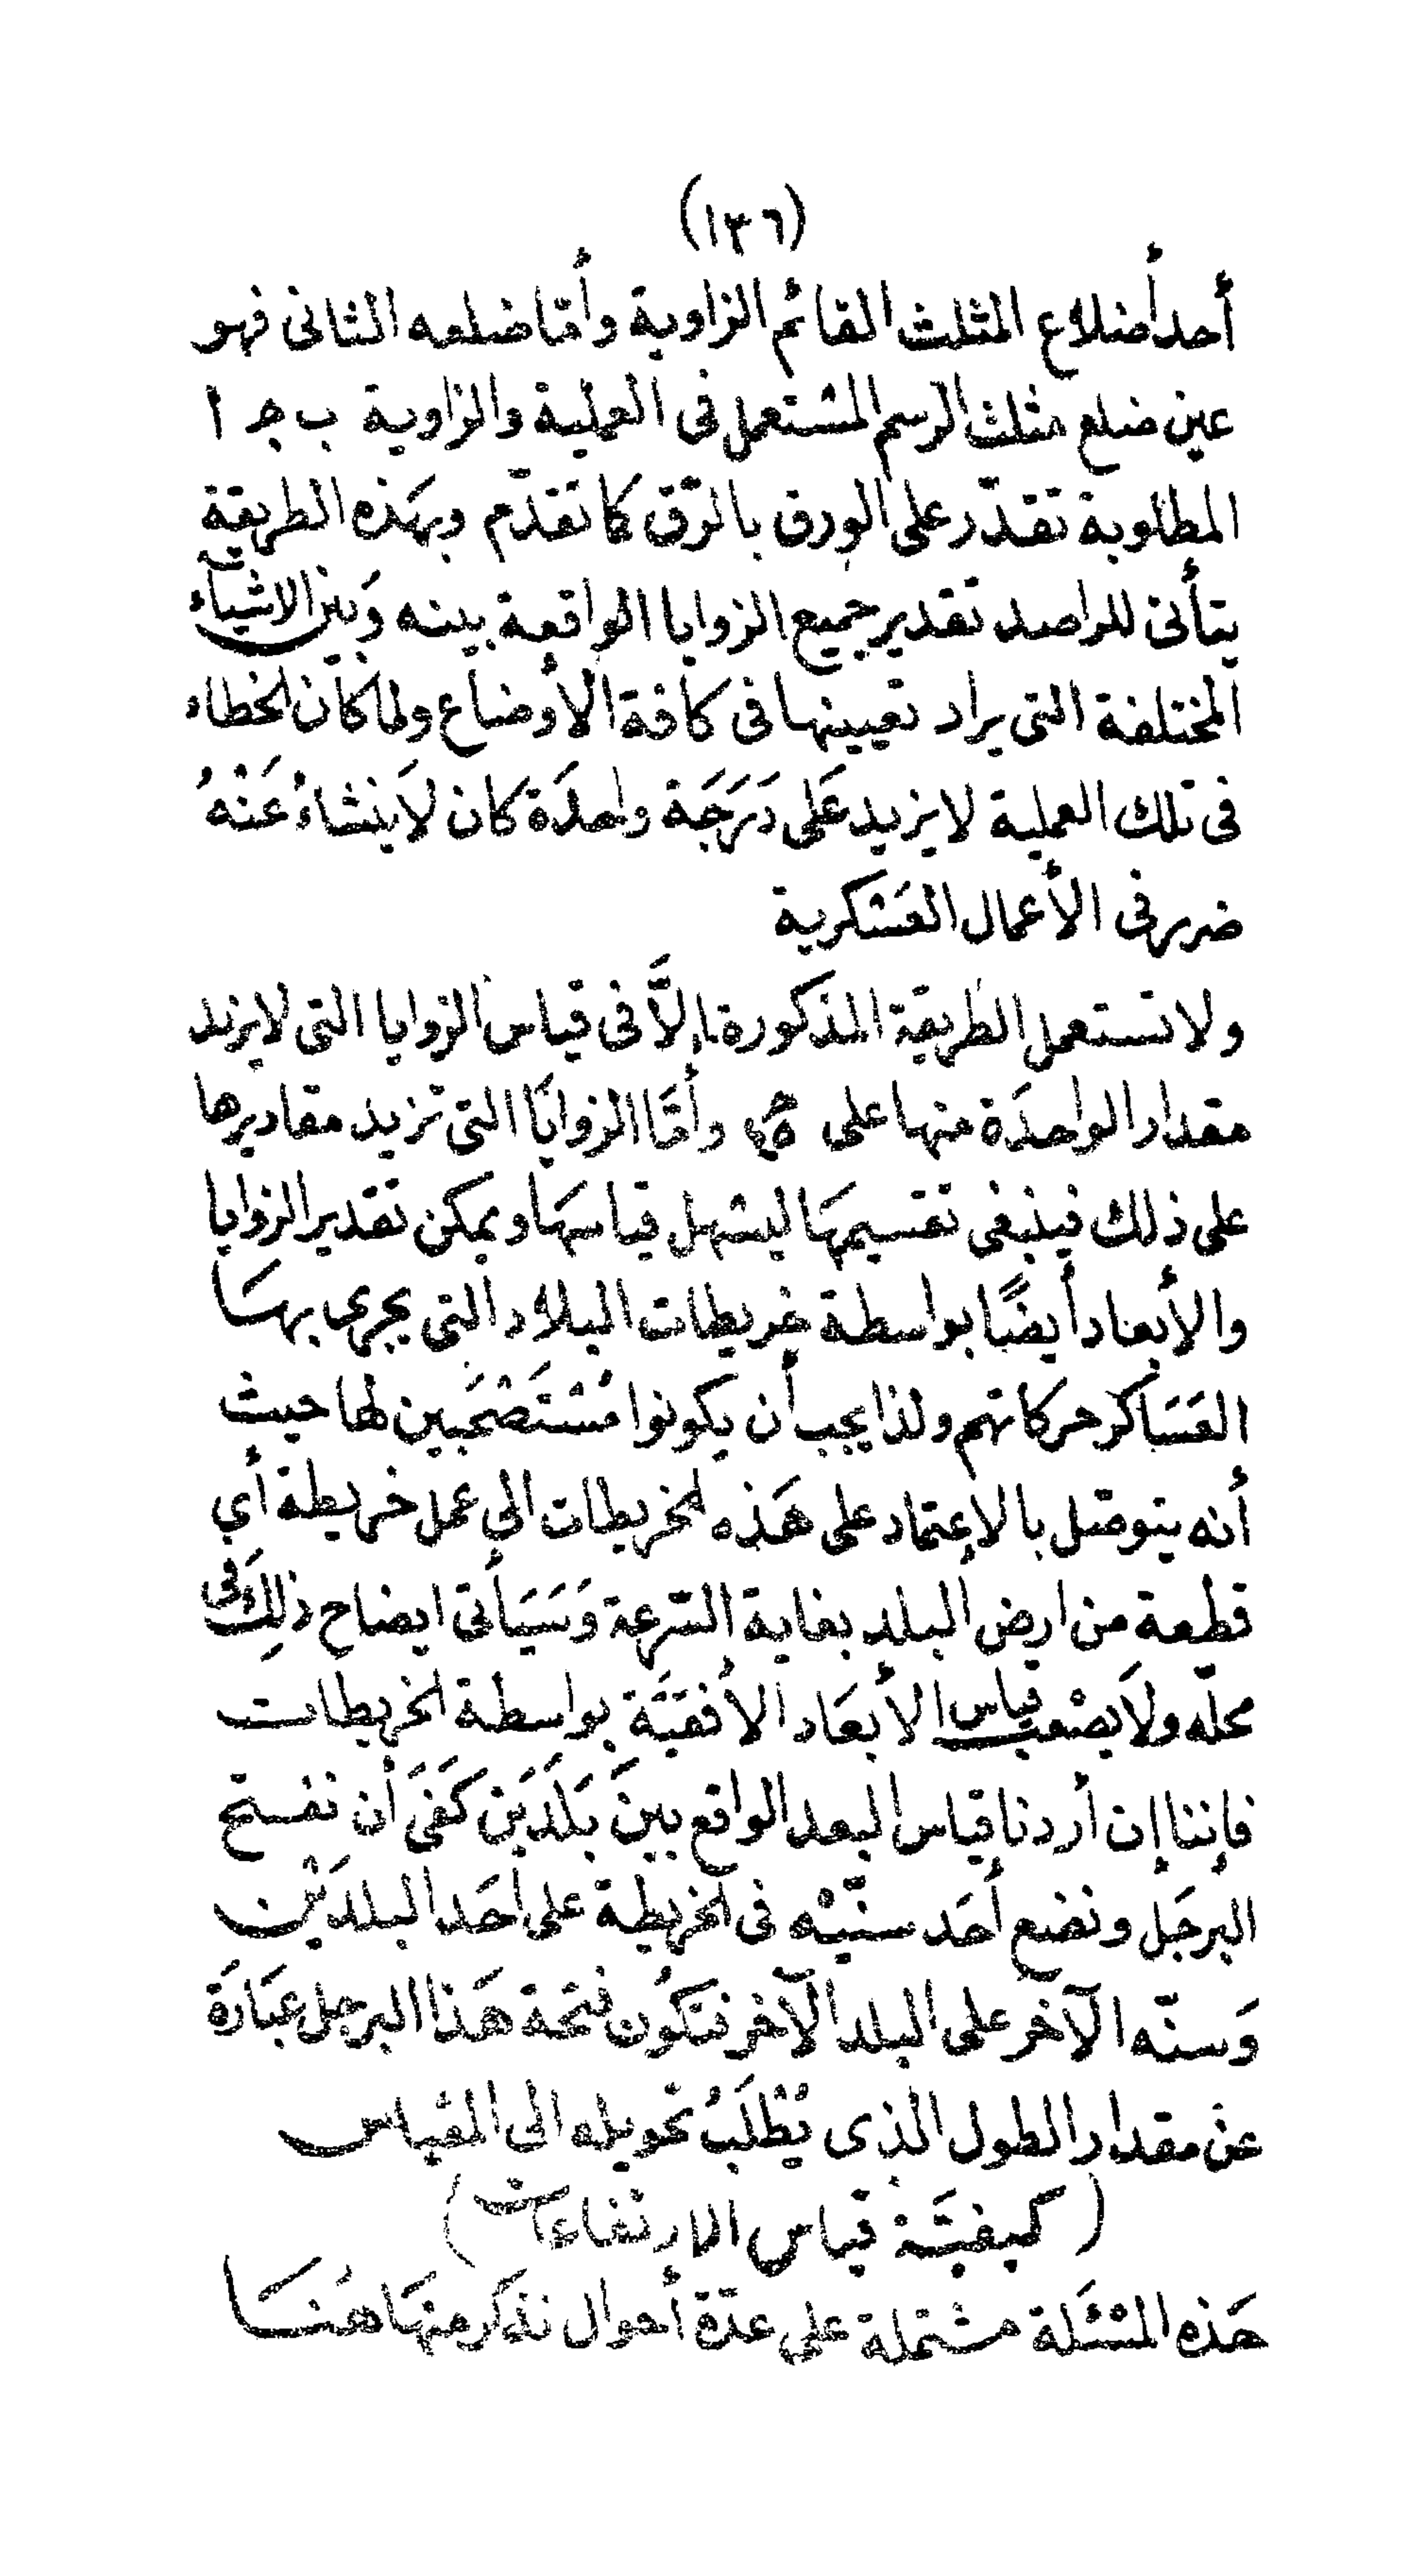 (١٣٦)
أحد أضلاع المثلث القائم الزاوية وأمّا ضلعه الثانى فهو
عين ضلع مثلث الرسم المستعمل فى العملية والزاوية ب جـ ا
المطلوبة تقدّر على الورق بالرّق كما تقدّم وبهذه الطريقة
يتأتى للراصد تقدير جميع الزوايا الواقعة بينه وَبين الاشيآء
المختلفة التى يراد تعيينها فى كافة الأوضاع ولما كان الخطاء
فى تلك العملية لا يزيد عَلى دَرَجَة واحدَة كان لاَ ينشاءُ عَنْهُ
ضرر فى الأعمال العَسْكرية
ولا تستعمل الطريقة المذكورة إلاَّ فى قياس الزوايا التى لا يزيد
مقدار الواحدَة منها على وأمَّا الزوايَا التى تزيد مقاديرها
على ذلك فينبغى تقسيمهَا ليسْهل قياسهَا ويمكن تقدير الزوايا
والأبعاد أيضًا بواسطة خريطات البلاد التى يجرى بهسَا
العَسَاكر حركاتهم ولذا يجب أن يكونوا مُسْتَصْحَبين لها حيث
أنه يتوصّل بالإعتماد على هَذه الخريطات الى عمل خريطة أي
قطعة من ارض البلد بغاية السّرعة وَسَيَأتى ايضاح ذلِكَ فى
محلّه ولاَ يصْعب قياس الأبعَاد الأفقيَّة بواسطة الخريطات
فإننا إن أردنا قياس البعد الواقع بينَ بَلَدَيَن كَفَىَ أن نفستح
البرجَل ونضع أحَد سنّيْه فى الخريطة على أحَد البلدَيْن
وَسنّه الآخر على البلد الآخر فتكُون فتحة هَذا البرجل عبَارَة
عن مقدار الطول الذى يُطْلَبُ تحويله الى المقياس
(كيفيَّة قياس الارتفاعات)
هَذه المسْئَلة مشتملة على عدّة أحوال نذكر منهَا هُنَا